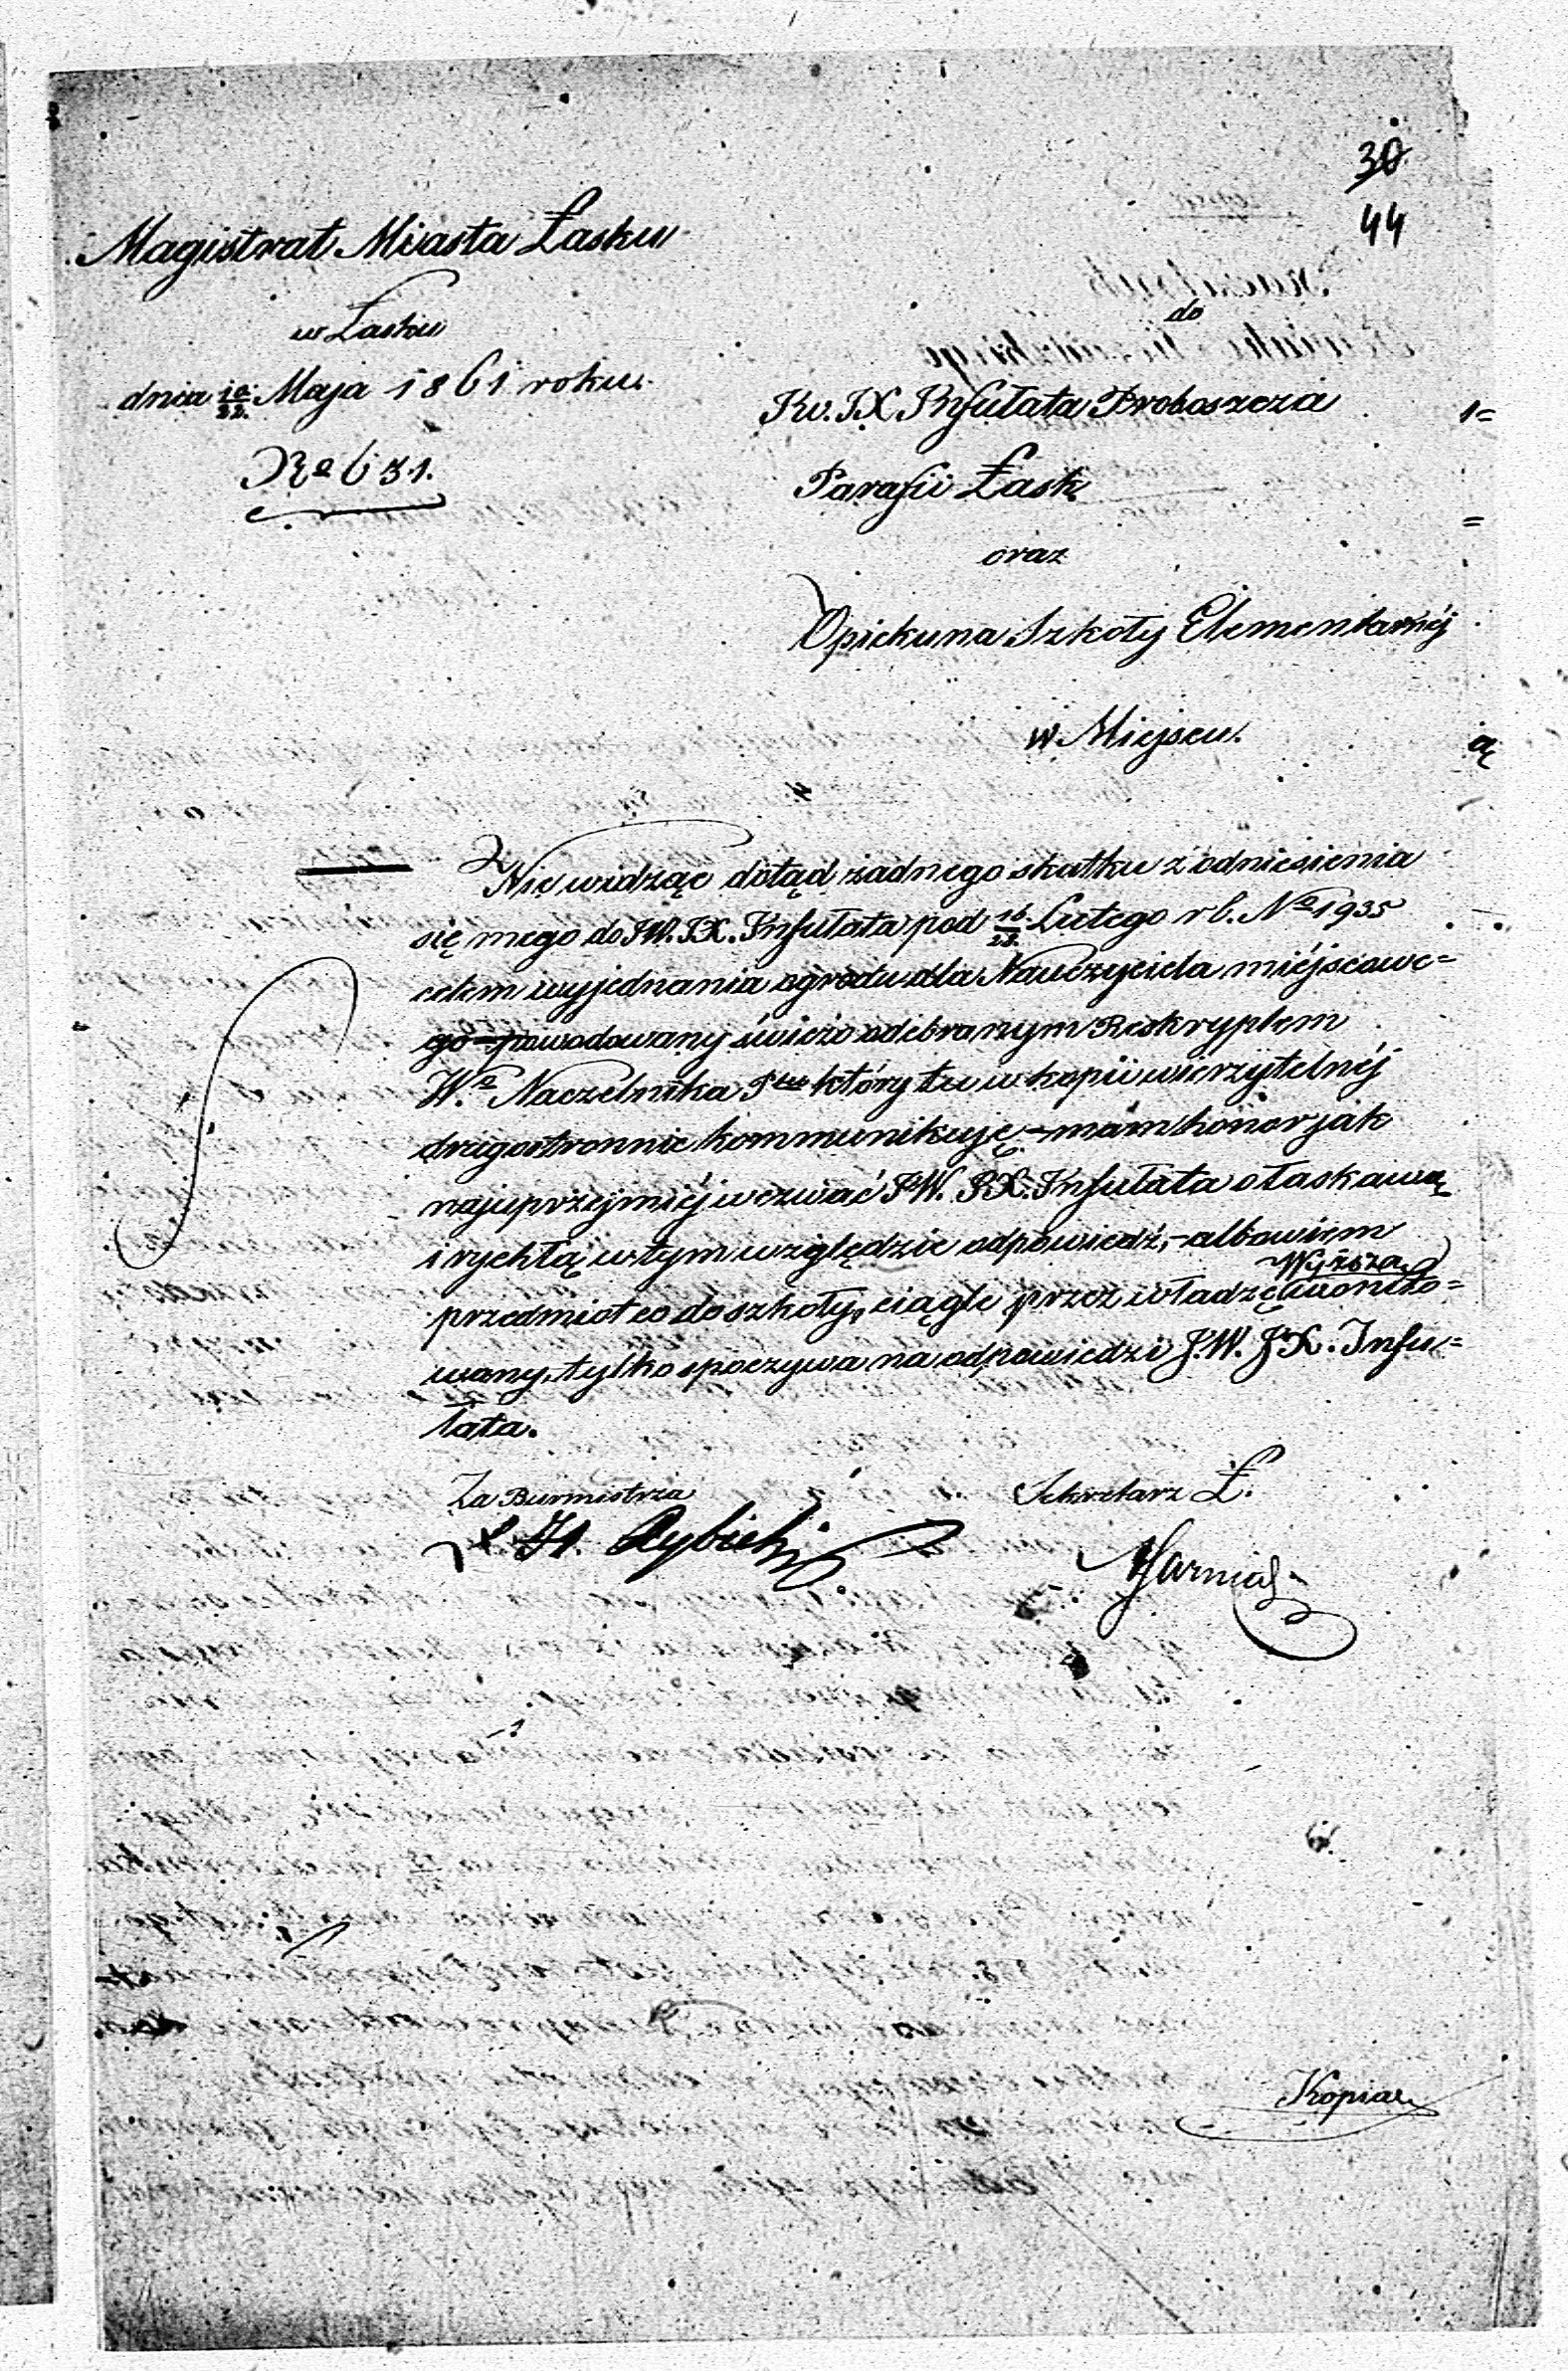 30
44
Magistrat Miasta Łasku
w Łasku
dnia 10/22 Maja 1861 roku.
No 631.
do
JW. JX Infułata Proboszcza
Parafii Łask
oraz
Opiekuna Szkoły Elementarnéj
w Miejscu.
Nie widząc dotąd żadnego skutku z odniesienia
się mego do JW. JX. Infułata pod Lutego r b. No 1935
celem wyjednania ogrodu dla Nauczyciela miéjscowe=
go – powodowany świeżo odebranym Reskryptem
Wo Naczelnika Ptu który tu w kopii wierzytelnéj
drugostronnie kommunikuję – mam honor jak
najuprzejmiéj wezwać JW. JX. Infułata o łaskawą
i rychłą w tym względzie odpowiedź, – albowiem
przedmiot co do szkoły, ciągle przez władzę Wyższą monito=
wany, tylko spoczywa na odpowiedzi J.W. JX. Infu=
łata.
Za Burmistrza
Sekretarz Ł.
Rybicki
Kopia